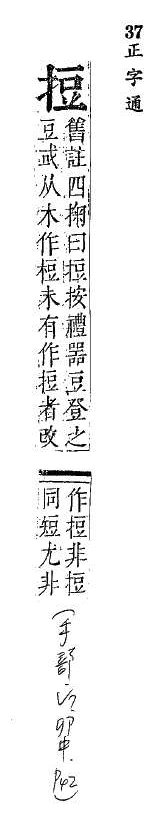 37正字通
𢭃
舊註四掬曰𢭃按禮器豆登之
豆或从木作梪未有作𢭃者改
作𢭃非𢭃
同短尤非
(手部 卯中.P42)